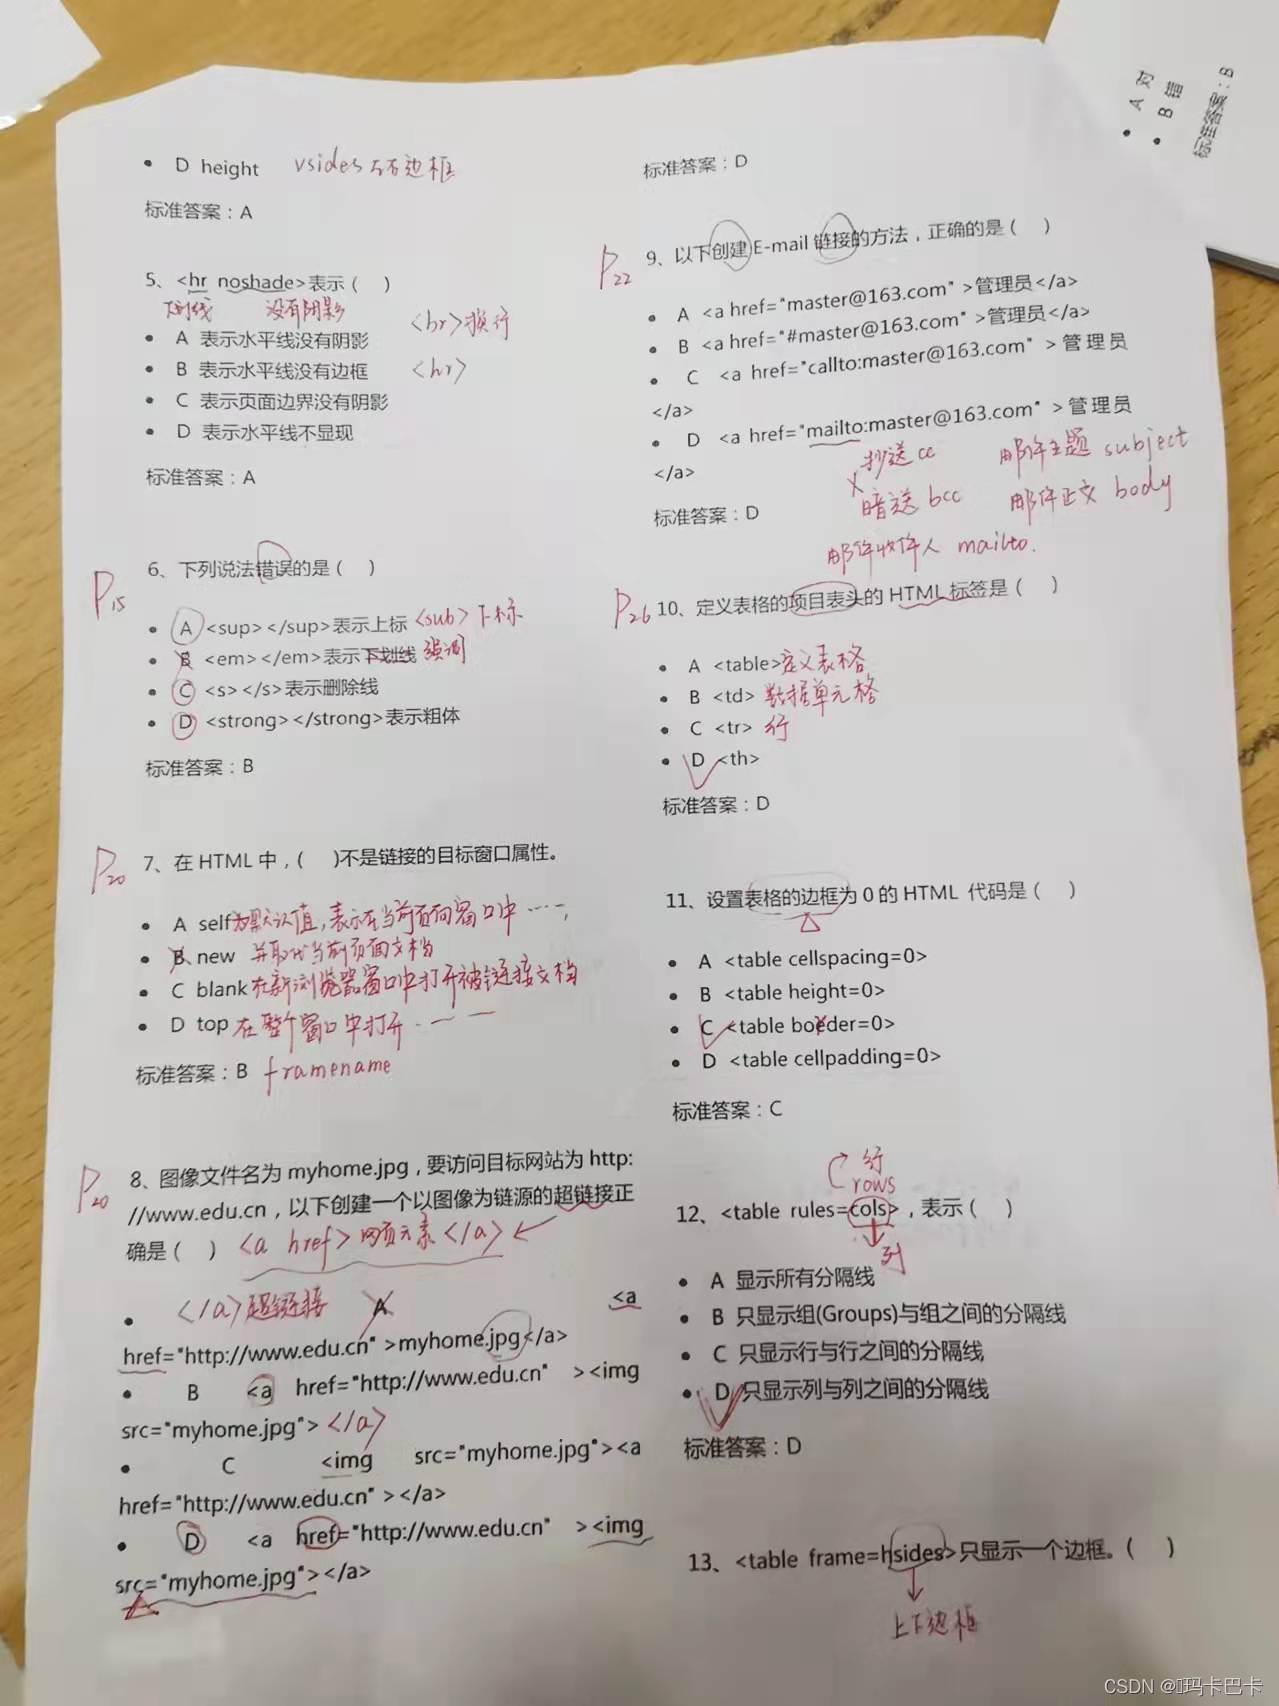 D height vsides 左右边框
标准答案：A
5、<hr noshade>表示（ ）
下划线 没有阴影
A 表示水平线没有阴影 <br>换行
B 表示水平线没有边框 <hr>
C 表示页面边界没有阴影
D 表示水平线不显现
标准答案：A
P15
6、下列说法错误的是（ ）
A <sup></sup>表示上标 <sub>下标
B <em></em>表示下划线 强调
C <s></s>表示删除线
D <strong></strong>表示粗体
标准答案：B
P20
7、在 HTML 中，( )不是链接的目标窗口属性。
A self为默认值，表示在当前页面窗口中……，
B new 并取代当前页面文档
C blank在新浏览器窗口中打开被链接文档
D top 在整个窗口中打开……
标准答案：B framename
P20
8、图像文件名为 myhome.jpg，要访问目标网站为 http:
//www.edu.cn，以下创建一个以图像为链源的超链接正
确是（ ） <a href>网页元素</a>
</a>超链接 A <a
href="http://www.edu.cn" >myhome.jpg</a>
B <a href="http://www.edu.cn" ><img
src="myhome.jpg"> </a>
C <img src="myhome.jpg"><a
href="http://www.edu.cn" ></a>
D <a href="http://www.edu.cn" ><img
src="myhome.jpg"></a>
标准答案：D
P22
9、以下创建 E-mail 链接的方法，正确的是（ ）
A <a href="master@163.com" >管理员</a>
B <a href="#master@163.com" >管理员</a>
C <a href="callto:master@163.com" >管理员
</a>
D <a href="mailto:master@163.com" >管理员
</a>
抄送 cc 邮件主题 subject
暗送 bcc 邮件正文 body
标准答案：D
邮件收件人 mailto.
P26
10、定义表格的项目表头的 HTML 标签是（ ）
A <table>定义表格
B <td> 数据单元格
C <tr> 行
D <th>
标准答案：D
11、设置表格的边框为 0 的 HTML 代码是（ ）
A <table cellspacing=0>
B <table height=0>
C <table boeder=0>
D <table cellpadding=0>
标准答案：C
行
rows
12、<table rules=cols>，表示（ ）
列
A 显示所有分隔线
B 只显示组(Groups)与组之间的分隔线
C 只显示行与行之间的分隔线
D 只显示列与列之间的分隔线
标准答案：D
13、<table frame=hsides>只显示一个边框。（ ）
上下边框
A 对
B 错
标准答案：B
CSDN @玛卡巴卡